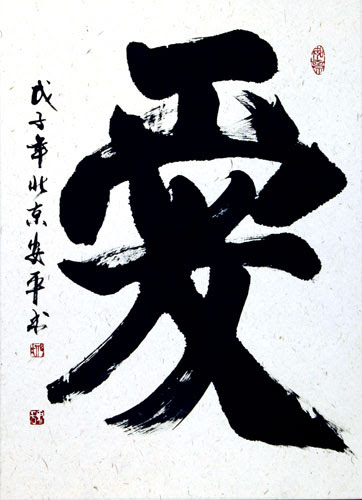 爱
戊子年北京安平书